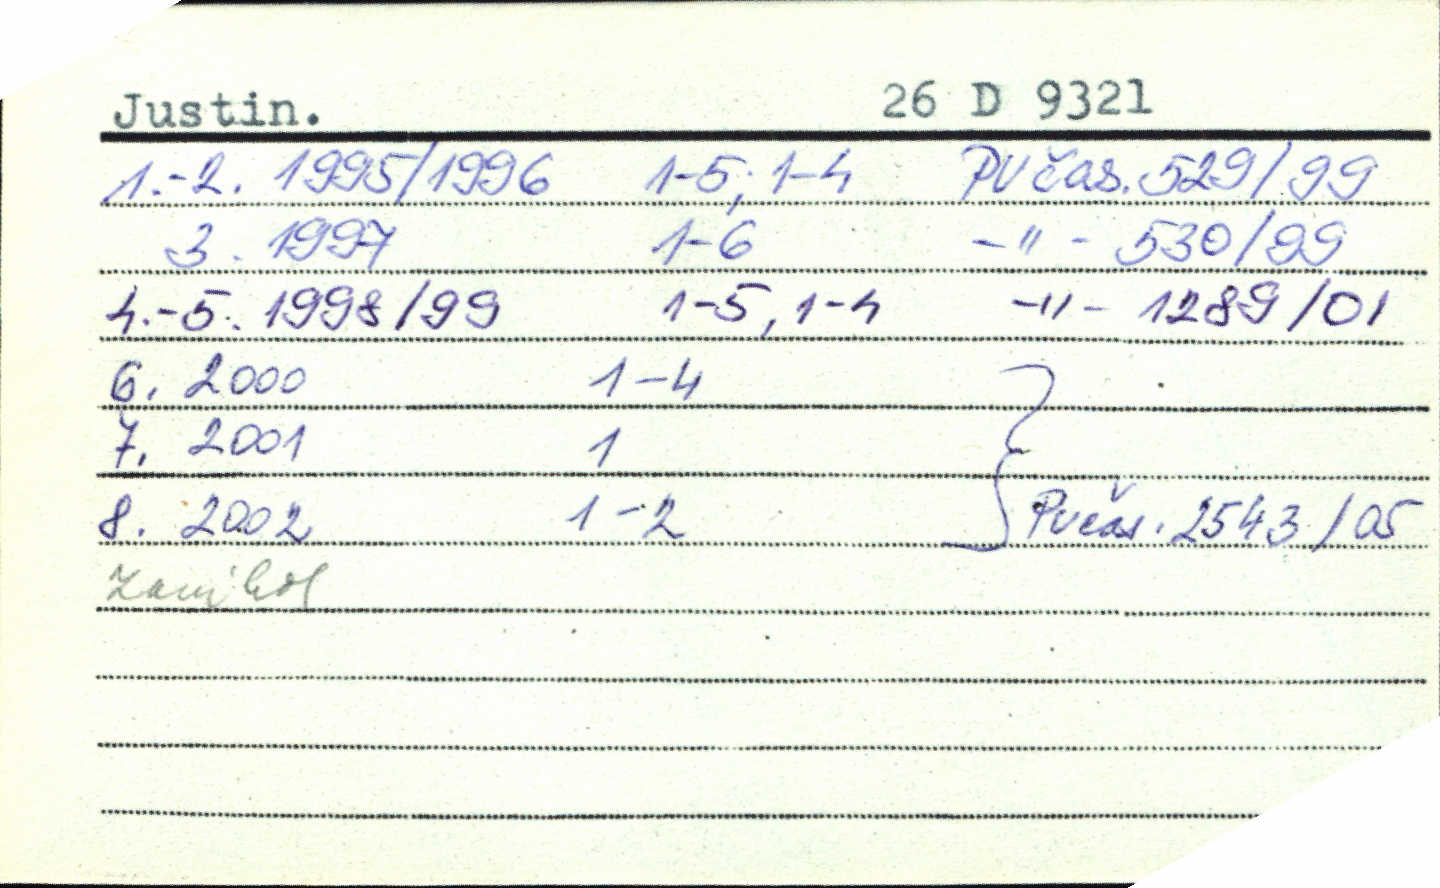 Justin. 26 D 9321
1.-2. 1995/1996 1-5, 1-4 PVčas. 529/99
3. 1997 1-6 -"- 530/99
4.-5. 1998/99 1-5, 1-4 -"- 1289/01
6. 2000 1-4
7. 2001 1
8. 2002 1-2 PVčas. 2543/05
Zanikol